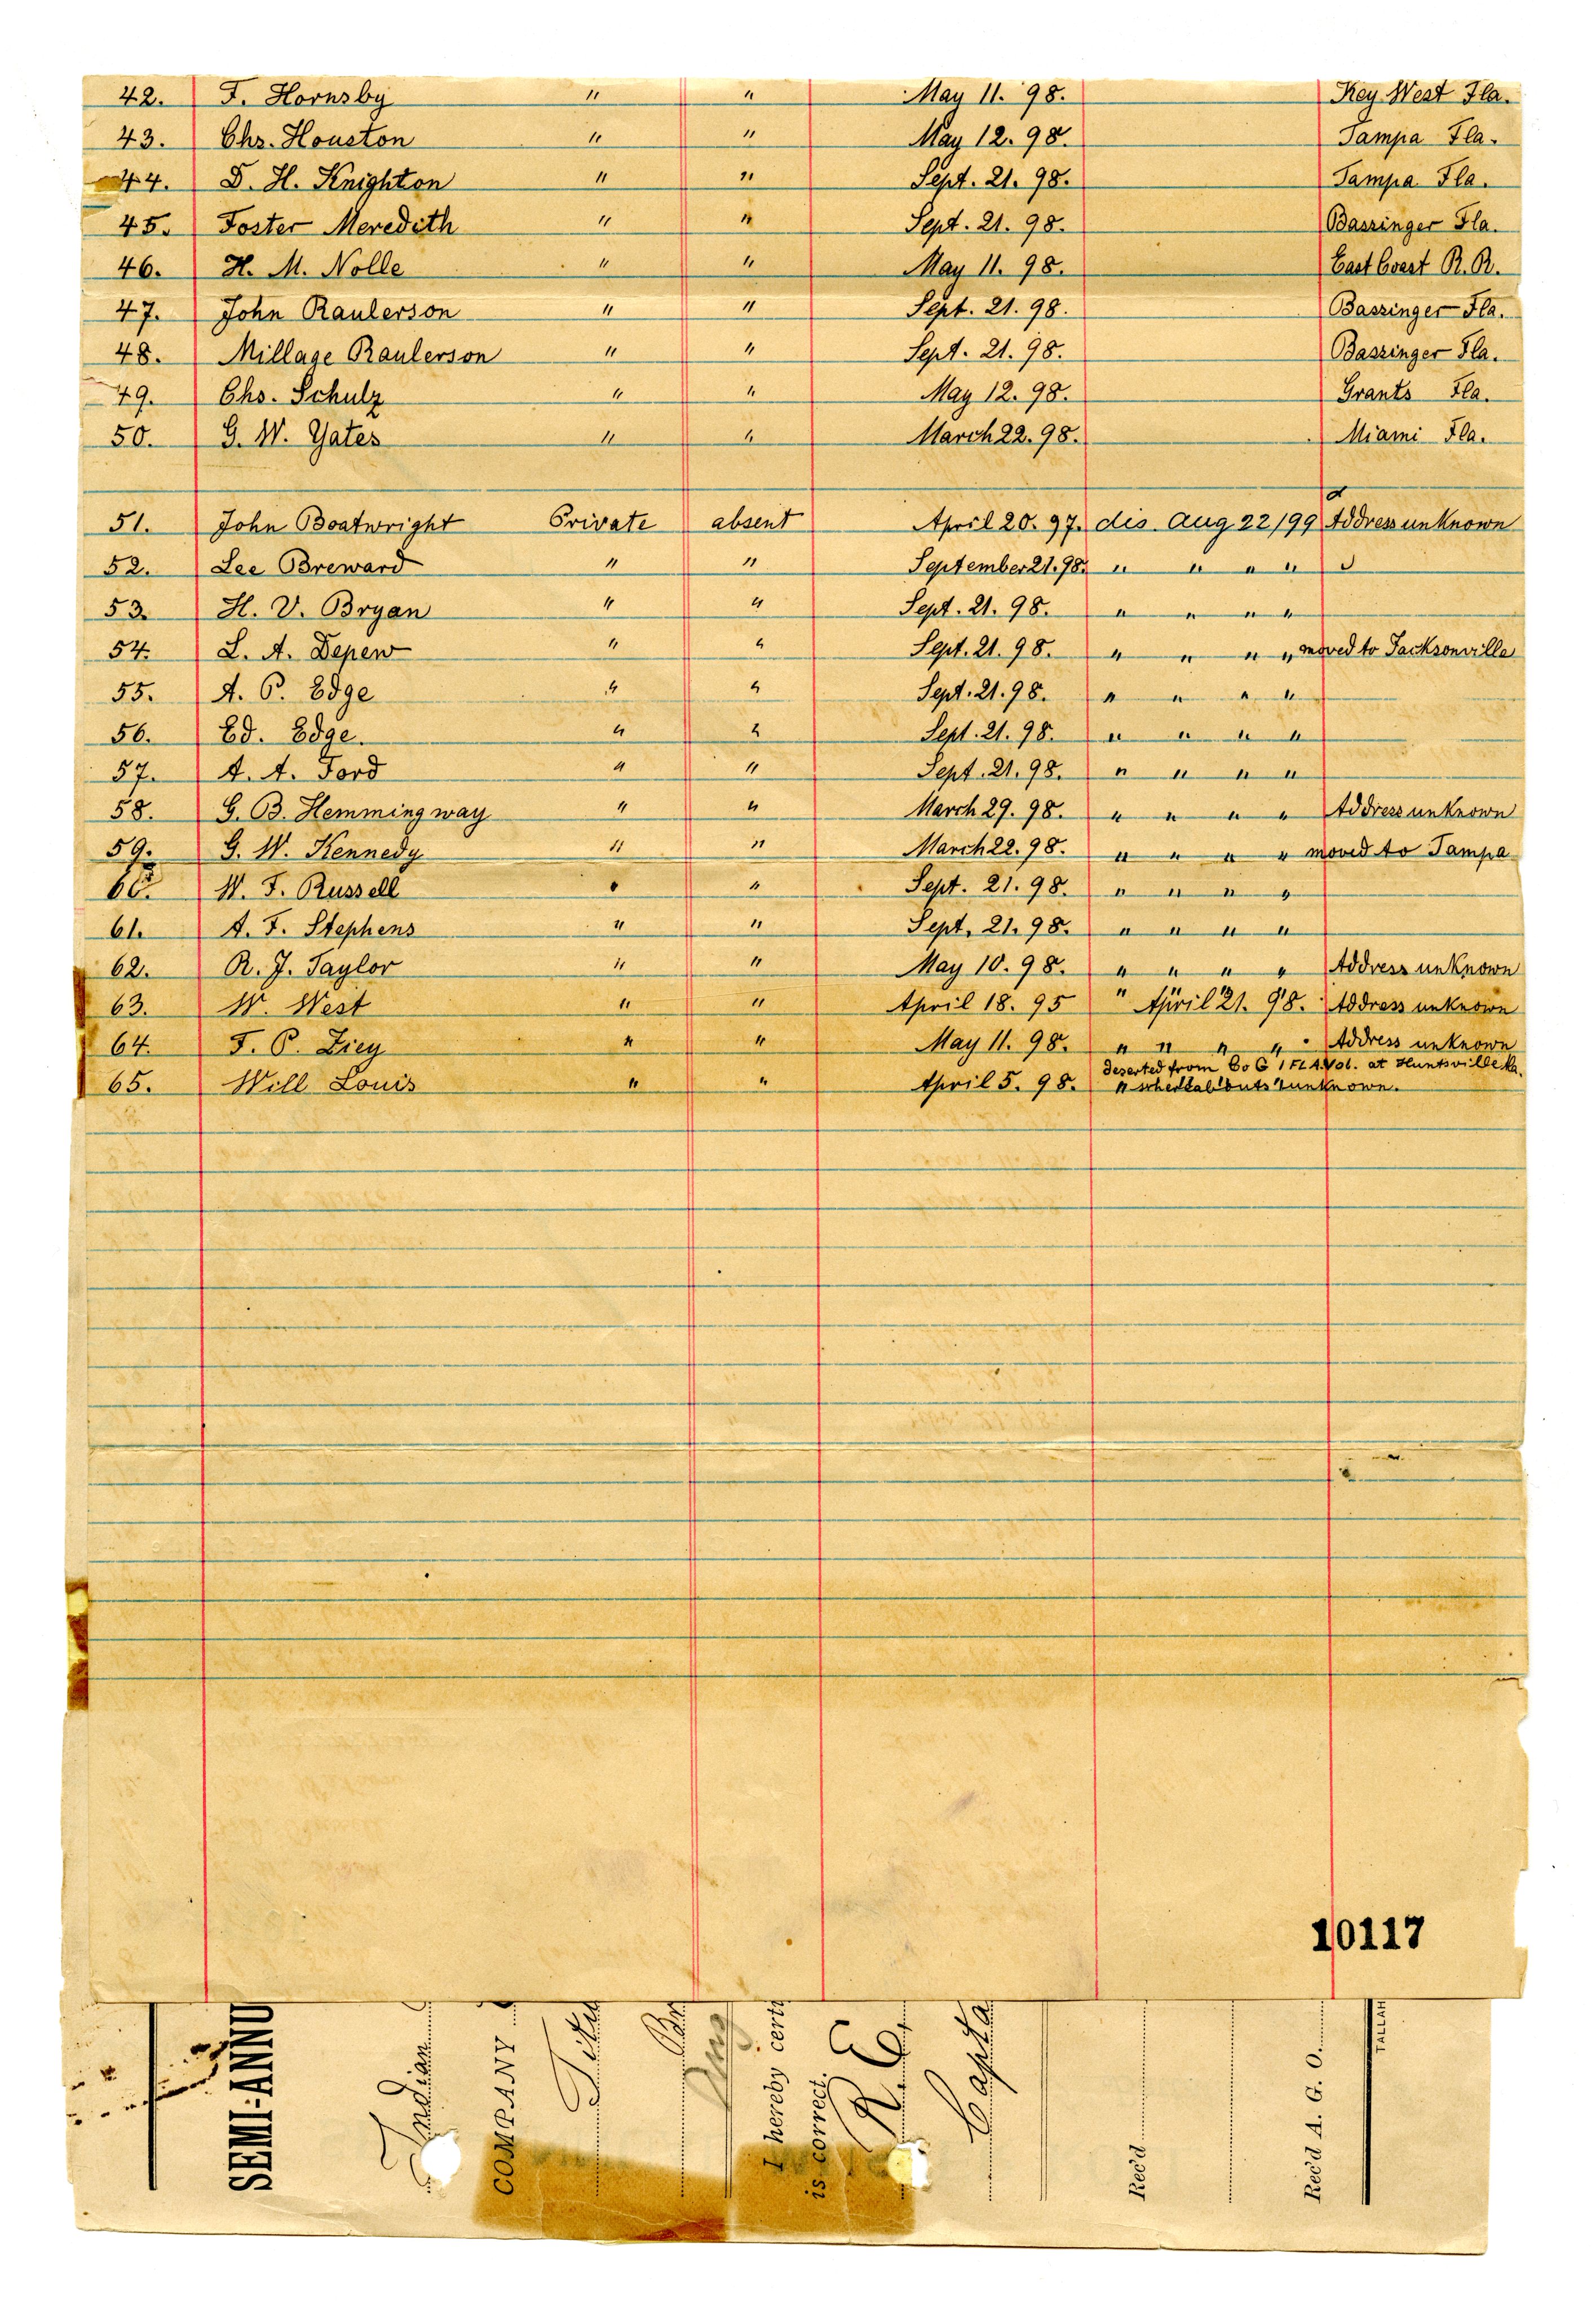 42. F. Hornsby " " May 11. 98. Key West Fla.
43. Chs. Houston " " May 12. 98. Tampa Fla.
44. D. H. Knighton " " Sept. 21. 98. Tampa Fla.
45. Foster Meredith " " Sept. 21. 98. Bassinger Fla.
46. H. M. Nolle " " May 11. 98. East Coast R. R.
47. John Raulerson " " Sept. 21. 98. Bassinger Fla.
48. Millage Raulerson " " Sept. 21. 98. Bassinger Fla.
49. Chs. Schulz " " May 12. 98. Grants Fla.
50. G. W. Yates " " March 22. 98. Miami Fla.
51. John Boatwright Private absent April 20. 97. dis. Aug 22/99 Address unknown
52. Lee Breward " " September 21. 98. " " " "
53. H. V. Bryan " " Sept. 21. 98. " " " "
54. L. A. Depew " " Sept. 21. 98. " " " " moved to Jacksonville
55. A. P. Edge " " Sept. 21. 98. " " " "
56. Ed. Edge. " " Sept. 21. 98. " " " "
57. A. A. Ford " " Sept. 21. 98. " " " "
58. G. B. Hemmingway " " March 29. 98. " " " " Address unknown
59. G. W. Kennedy " " March 22. 98. " " " " moved to Tampa
60. W. F. Russell " " Sept. 21. 98. " " " "
61. A. F. Stephens " " Sept. 21. 98. " " " "
62. R. J. Taylor " " May 10. 98. " " " " Address unknown
63. W. West " " April 18. 95 " April 21. 98. Address unknown
64. F. P. Ziey " " May 11. 98. " " " " Address unknown
deserted from Co G 1 FLA. Vol. at Huntsville Ala.
65. Will Louis " " April 5. 98. " whereabouts unknown.
10117
SEMI-ANNU
Indian
COMPANY
Aug
I hereby certi
is correct.
R. E.
Capta
Rec'd
Rec'd A. G. O.
TALLAH